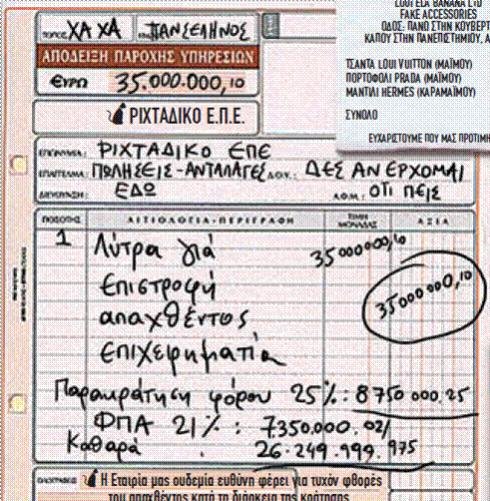 LOUΓΕΙΑ BANANA LTD
FAKE ACCESSORIES
ΟΔΟΣ: ΠΑΝΩ ΣΤΗΝ ΚΟΥΒΕΡΤ
ΚΑΠΟΥ ΣΤΗΝ ΠΑΝΕΠΙΣΤΗΜΙΟΥ, Α
ΤΣΑΝΤΑ LOUI VUITTON (ΜΑΪΜΟΥ)
ΠΟΡΤΟΦΟΛΙ PRADA (ΜΑΪΜΟΥ)
ΜΑΝΤΙΛΙ HERMES (ΚΑΡΑΜΑΪΜΟΥ)
ΣΥΝΟΛΟ
ΕΥΧΑΡΙΣΤΟΥΜΕ ΠΟΥ ΜΑΣ ΠΡΟΤΙΜΗ
ΧΑ ΧΑ ΠΑΝΣΕΛΗΝΟΣ
ΑΠΟΔΕΙΞΗ ΠΑΡΟΧΗΣ ΥΠΗΡΕΣΙΩΝ
ΕΥΡΩ 35.000.000,10
ΡΙΧΤΑΔΙΚΟ Ε.Π.Ε.
ΡΙΧΤΑΔΙΚΟ ΕΠΕ
ΕΠΑΓΓΕΛΜΑ: ΠΩΛΗΣΕΙΣ-ΑΝΤΑΛΑΓΕΣ Δ.Ο.Υ.: ΔΕΣ ΑΝ ΕΡΧΟΜΑΙ
ΔΙΕΥΘΥΝΣΗ: ΕΔΩ Α.Φ.Μ.: ΟΤΙ ΠΕΙΣ
ΠΟΣΟΤΗΣ ΑΙΤΙΟΛΟΓΙΑ-ΠΕΡΙΓΡΑΦΗ ΤΙΜΗ ΜΟΝΑΔΑΣ ΑΞΙΑ
1 Λύτρα για 35000000,10
επιστροφή 35000000,10
απαχθέντος
επιχειρηματία
Παρακράτηση φόρου 25%: 8750 000.25
ΦΠΑ 21% : 7.350.000.02/
Καθαρά . 26.249.999.975
Η Εταιρία μας ουδεμία ευθύνη φέρει για τυχόν φθορές
του απαχθέντος κατά τη διάρκεια της κράτησης